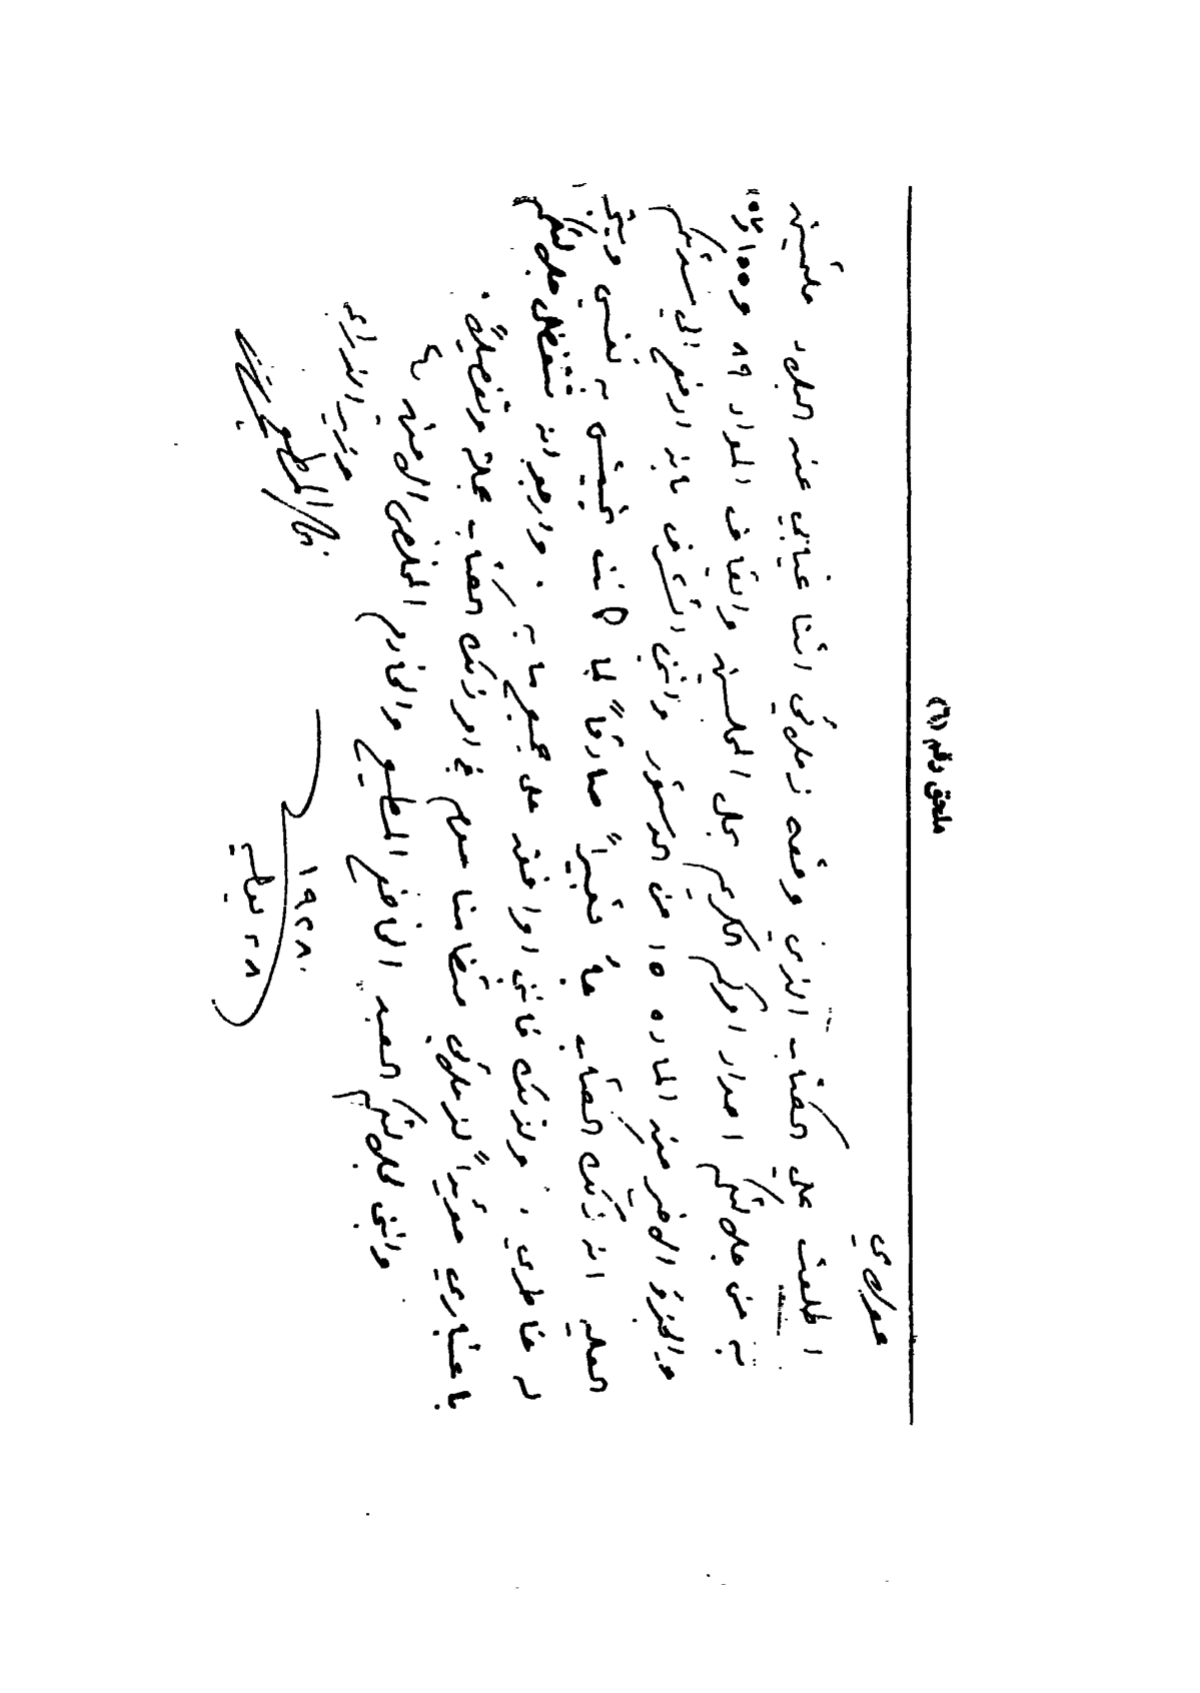 ملحق رقم (٦)
مولاي
اطلعت على الكتاب الذي وقعه زملائي اثنا غيابي عند البلاد ملتمسين
به من جلالتكم اصدار امركم الكريم بحل المجلسين وايقاف المواد ٨٩ و ١٥٥ و ١٥٧
والجزء الاخير من الماده ١٥ من الدستور واني اتشرف بان ارفع الي سدتكم
العليه ان ذلك الكتاب جاء تعبيراً صادقاً لما كانت تجيش به نفسي ويتجه
له خاطري، ولذلك فانني اوافق على جميع ما به. وارجو ان تتفضل جلالتكم
باعتباري مؤيداً لزملائي متضامنا معهم في امر ذلك الكتاب جملة وتفصيلاً.
وانني لجلالتكم العبد الخاضع المطيع والخادم المخلص الامين
وزير الزراعه
٢٨ يوليه ١٩٢٨